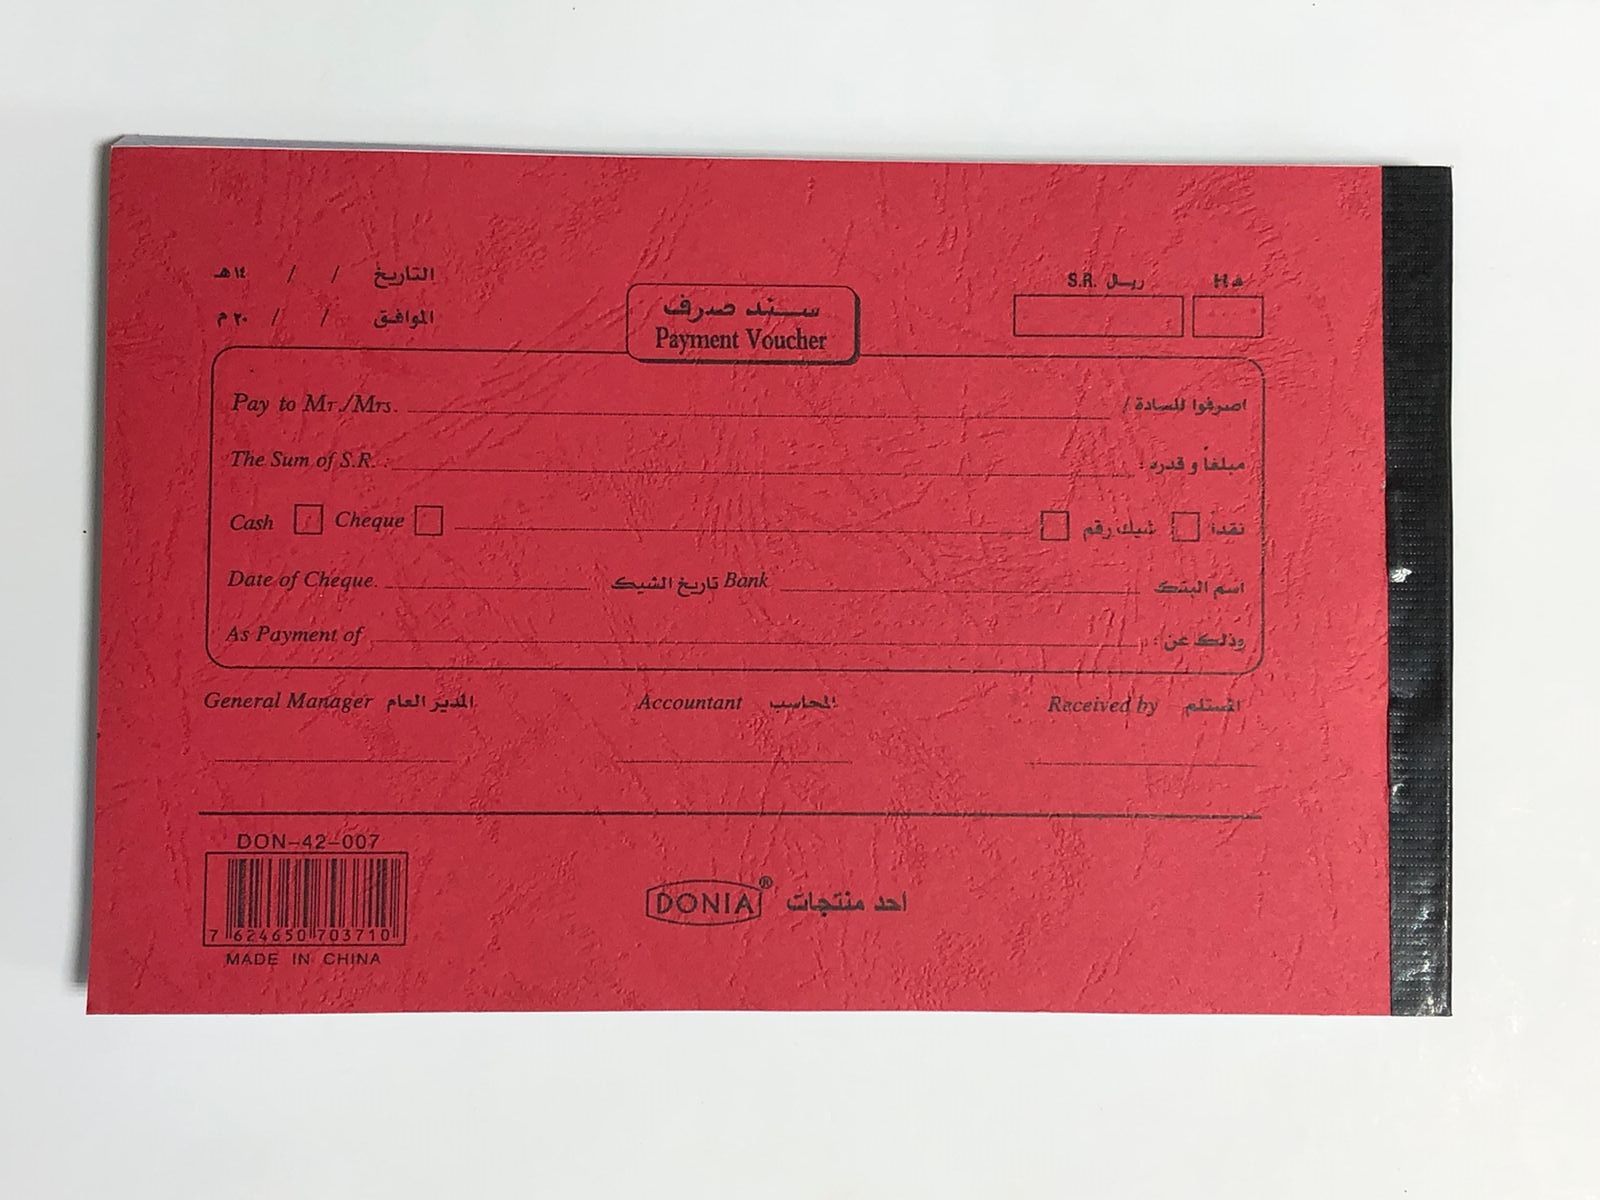 التاريخ / / ١٤هـ
ريال S.R. هـ H.
الموافق / / ٢٠م
سند صرف
Payment Voucher
Pay to Mr./Mrs. اصرفوا للسادة /
The Sum of S.R. : مبلغاً و قدره :
Cash Cheque شيك رقم نقداً
Date of Cheque. تاريخ الشيك Bank اسم البنك
As Payment of وذلك عن :
General Manager المدير العام Accountant المحاسب Received by المستلم
DON-42-007
7 624650 703710
MADE IN CHINA
DONIA® احد منتجات